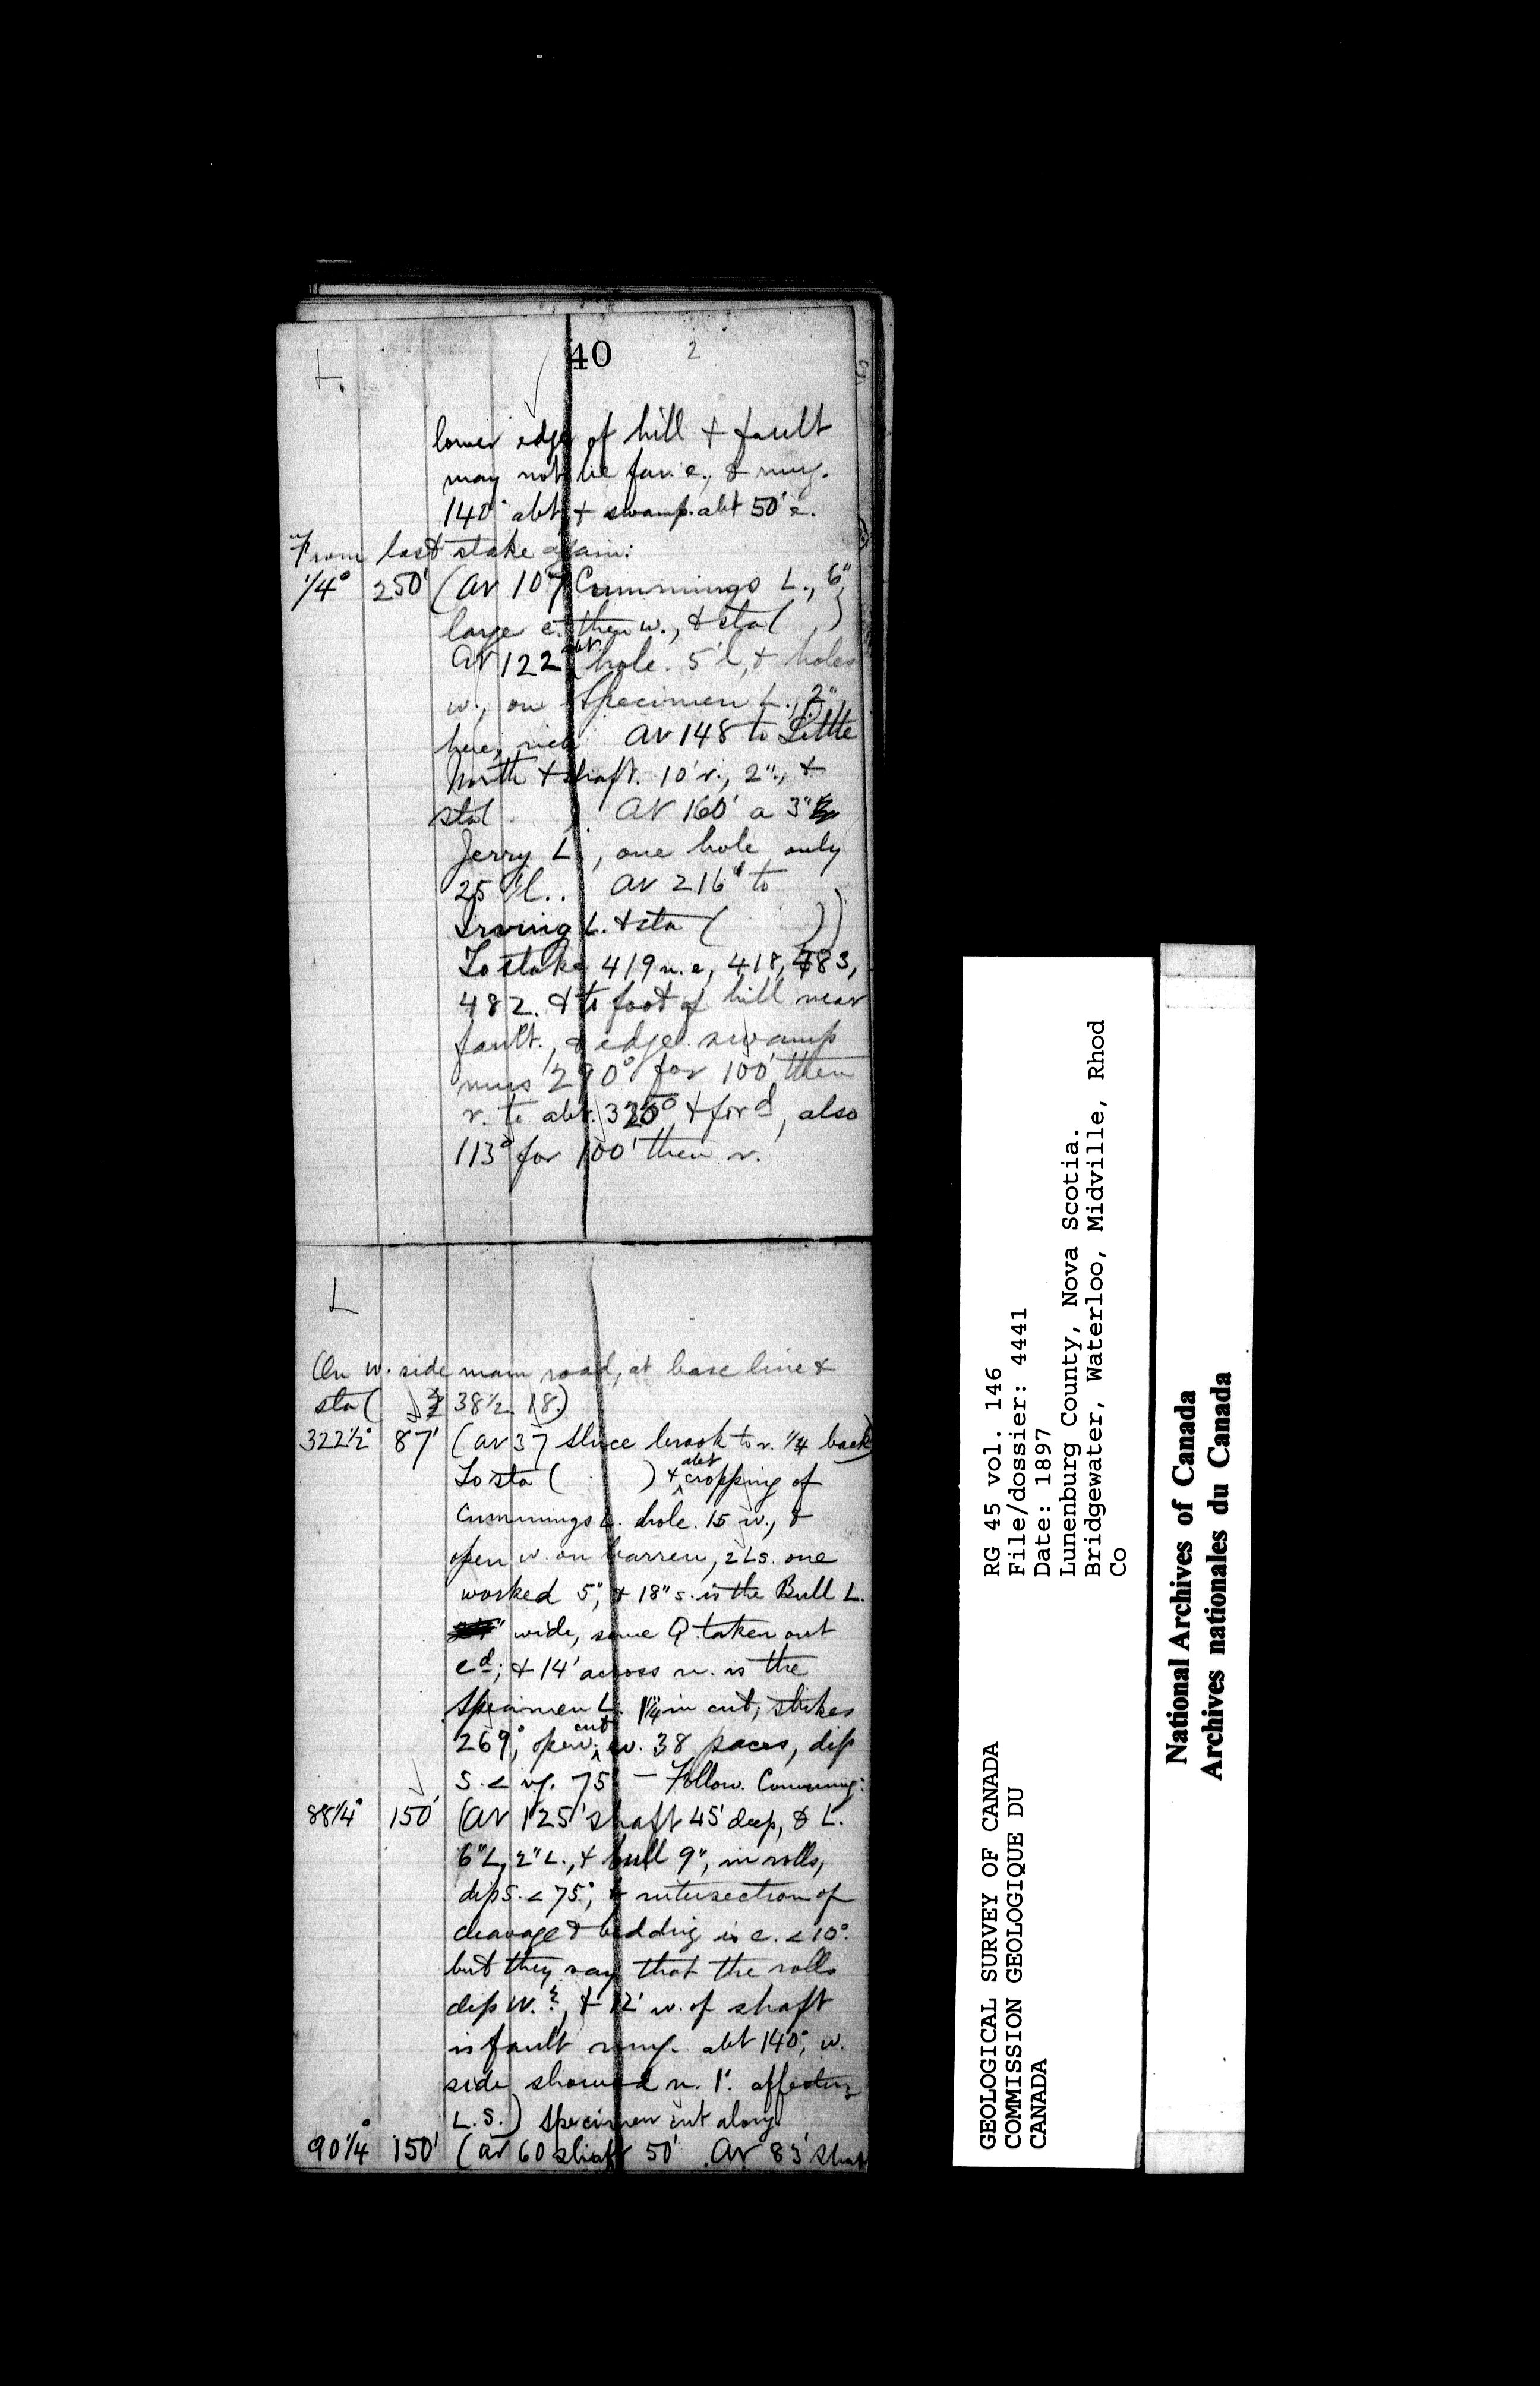 L.
40
2
lower edge of hill + fault
may not be far e., & rung.
140° abt + swamp abt 50' e.
From last stake again:
1/4° 250' (at 107 Cummings L., 6"
large e. then w., & sta ( )
at 122 abt hole 5' l, & holes
w., on Specimen L., 2"
here, rich at 148 to Little
North + shaft. 10' r., 2"., +
sta( ). at 160' a 3"
Jerry L., one hole only
25' l.. at 216' to
Irving L. + sta ( ))
To stake 419 n.e, 418, 483,
482. & to foot of hill near
fault., & edge swamp
runs 290° for 100' then
r. to abt. 325° + for d, also
113° for 100' then r.
L
On w. side main road, at base line &
sta ( 38 1/2. 18.)
322 1/2° 87' (at 37 sluce brook to r. 1/4 back)
To sta ( ) + abt cropping of
Cummings L. hole. 15 w., &
open w. on barren, 2 Ls. one
worked 5", & 18" s. is the Bull L.
wide, some Q taken out
e d; + 14' across n. is the
Specimen L. 1 1/4" in cut; strikes
269°, open cut w. 38 paces, dip
S. < 75 – Follow Cumming:
88 1/4° 150' (at 125' shaft 45' deep, & L.
6" L, 2" L., + bull 9", in rolls,
dip S. < 75°, & intersection of
cleavage & bedding is e. < 10°.
but they say that the rolls
dip W.?, + 12' w. of shaft
is fault rung. abt 140°, w.
side showed n. 1'. affecting
L.S.) Specimen cut along.
90 1/4° 150' (at 60 shaft 50' at 83' shaft
RG 45 vol. 146
File/dossier: 4441
Date: 1897
Lunenburg County, Nova Scotia.
Bridgewater, Waterloo, Midville, Rhod
Co
GEOLOGICAL SURVEY OF CANADA
COMMISSION GEOLOGIQUE DU
CANADA
National Archives of Canada
Archives nationales du Canada